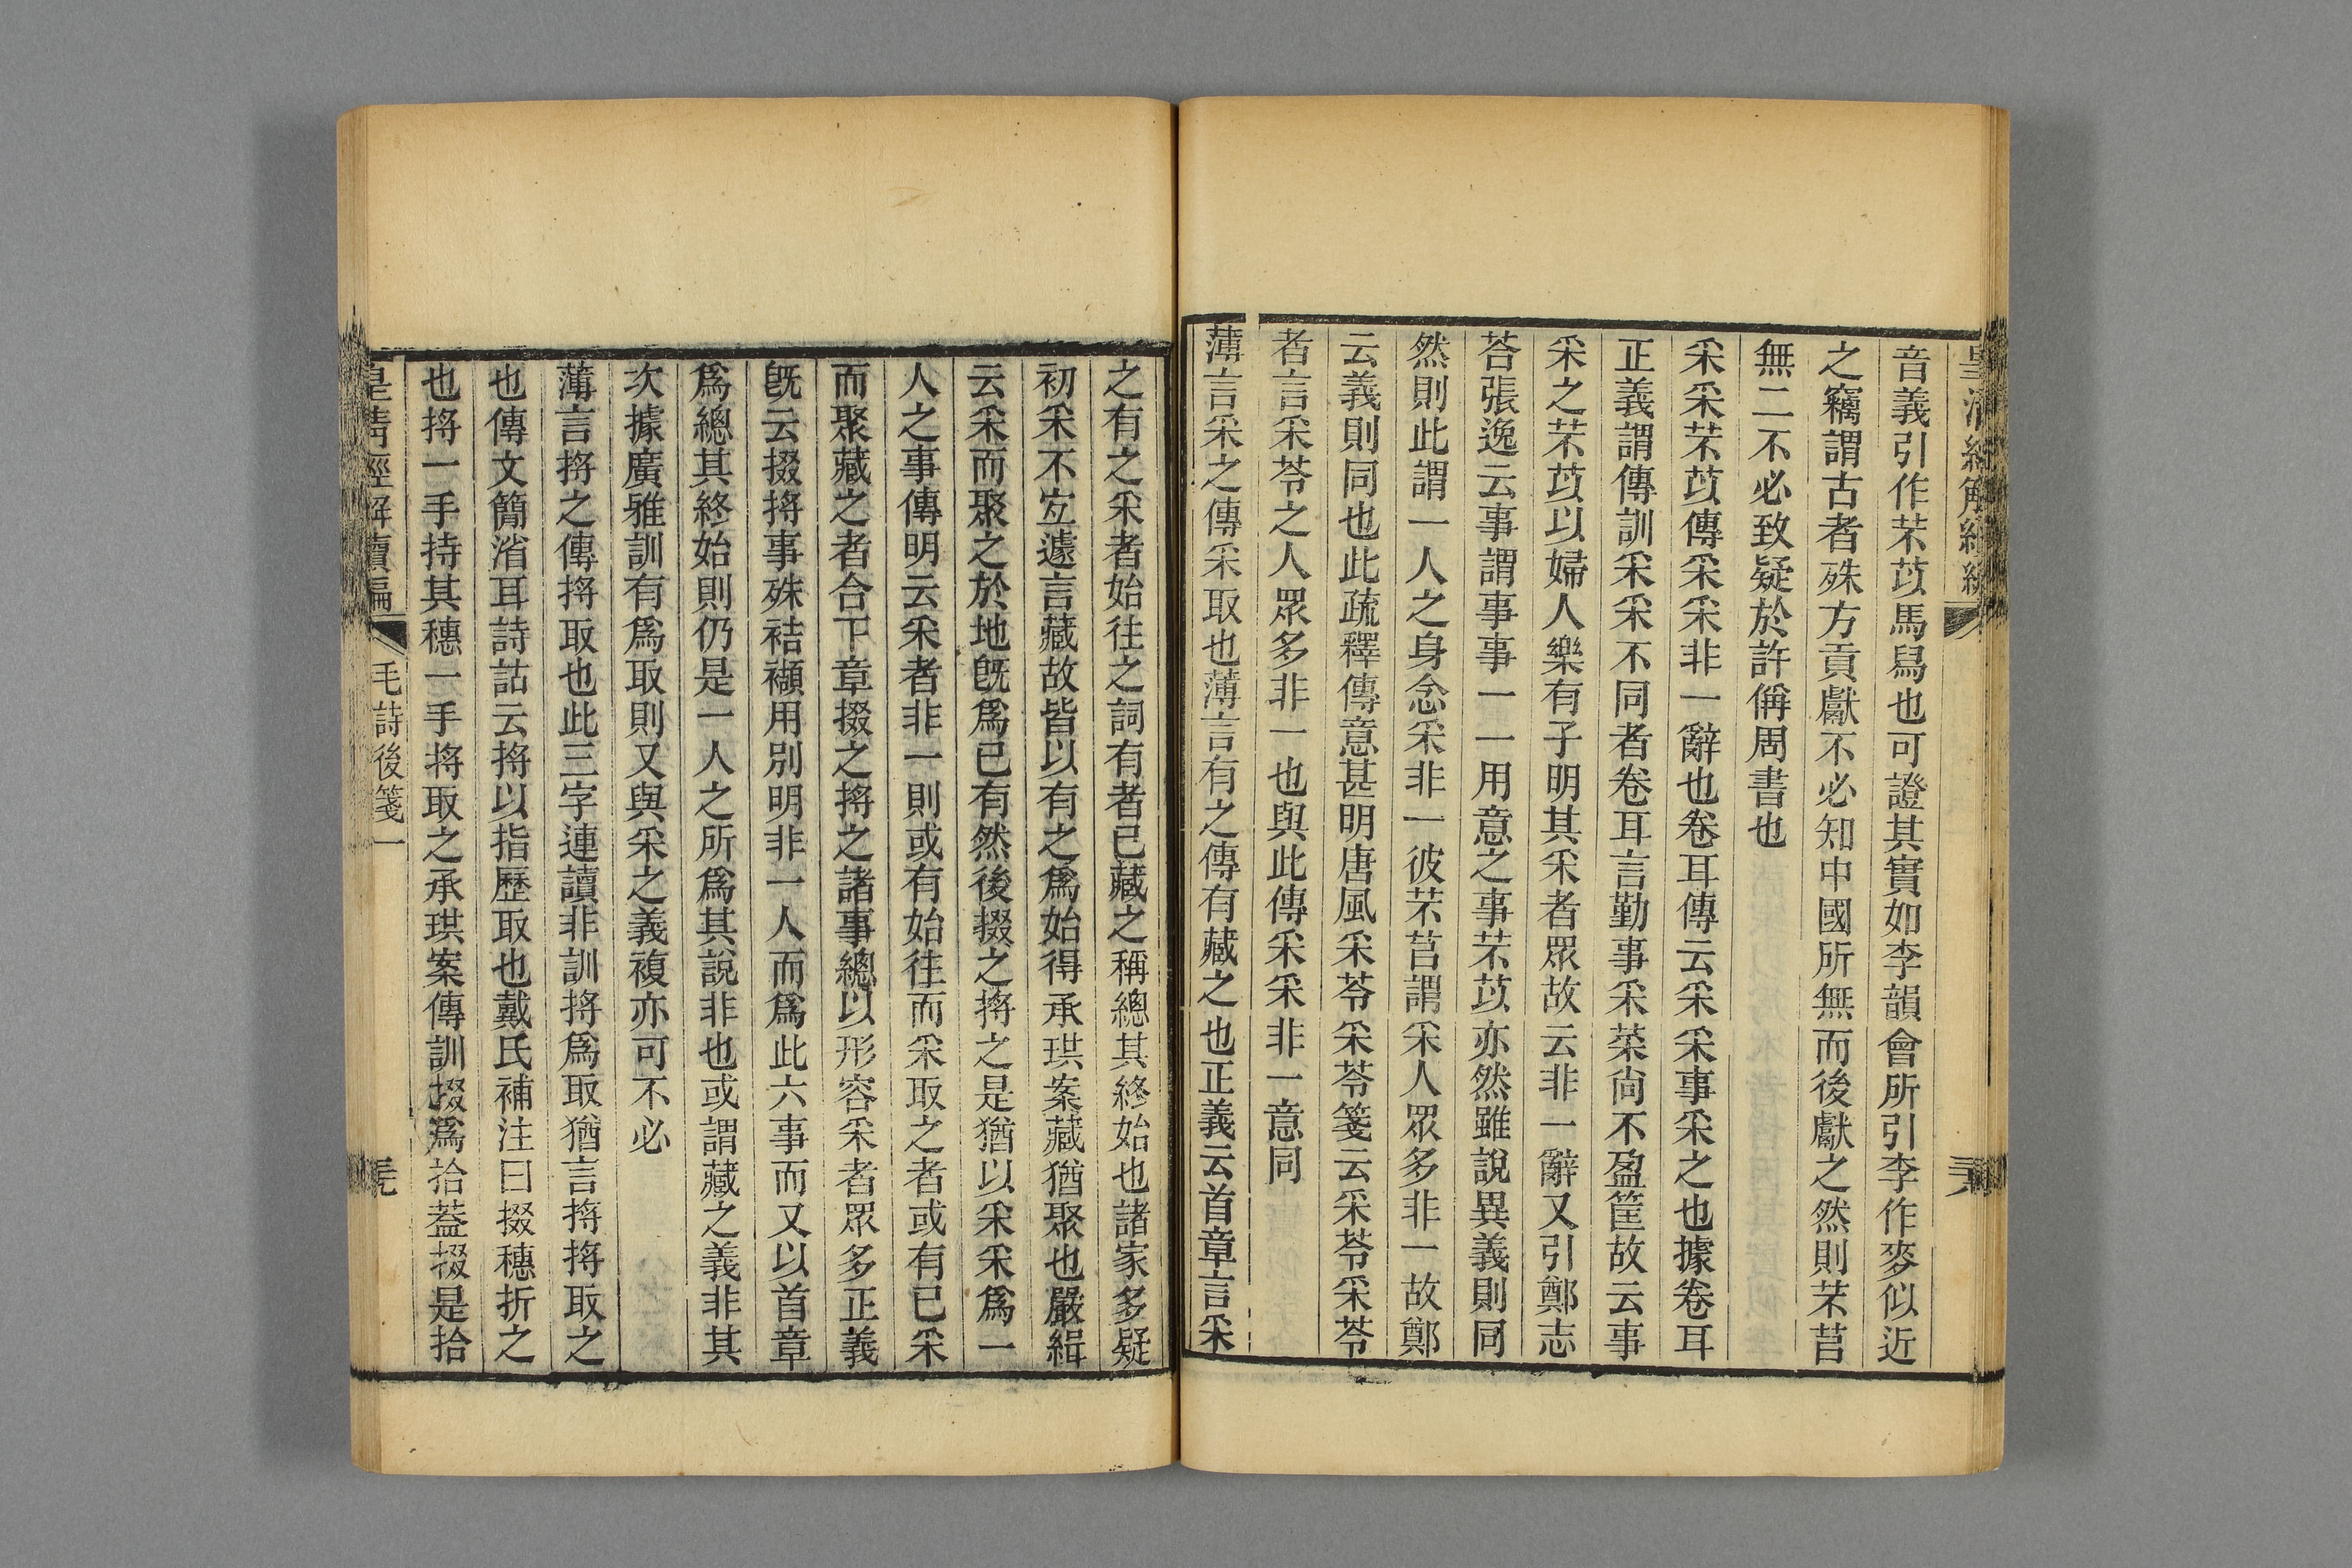 皇清經解續編
音義引作芣苡馬舄也可證其實如李韻會所引李作麥似近
之竊謂古者殊方貢獻不必知中國所無而後獻之然則芣苢
無二不必致疑於許偁周書也
采采芣苡傳采采非一辭也卷耳傳云采采事采之也據卷耳
正義謂傳訓采采不同者卷耳言勤事采菜尙不盈筐故云事
采之芣苡以婦人樂有子明其采者眾故云非一辭又引鄭志
荅張逸云事謂事事一一用意之事芣苡亦然雖說異義則同
然則此謂一人之身念采非一彼芣苢謂采人眾多非一故鄭
云義則同也此疏釋傳意甚明唐風采苓采苓箋云采苓采苓
者言采苓之人眾多非一也與此傳采采非一意同
薄言采之傳采取也薄言有之傳有藏之也正義云首章言采
之有之采者始往之詞有者已藏之稱總其終始也諸家多疑
初采不宐遽言藏故皆以有之爲始得承珙案藏猶聚也嚴緝
云采而聚之於地旣爲已有然後掇之捋之是猶以采采爲一
人之事傳明云采者非一則或有始往而采取之者或有已采
而聚藏之者合下章掇之捋之諸事總以形容采者眾多正義
旣云掇捋事殊袺襭用別明非一人而爲此六事而又以首章
爲總其終始則仍是一人之所爲其說非也或謂藏之義非其
次據廣雅訓有爲取則又與采之義複亦可不必
薄言捋之傳捋取也此三字連讀非訓捋爲取猶言捋捋取之
也傳文簡渻耳詩詁云捋以指歷取也戴氏補注曰掇穗折之
也捋一手持其穗一手捋取之承珙案傳訓掇爲拾蓋掇是拾
皇清經解續編
毛詩後箋一